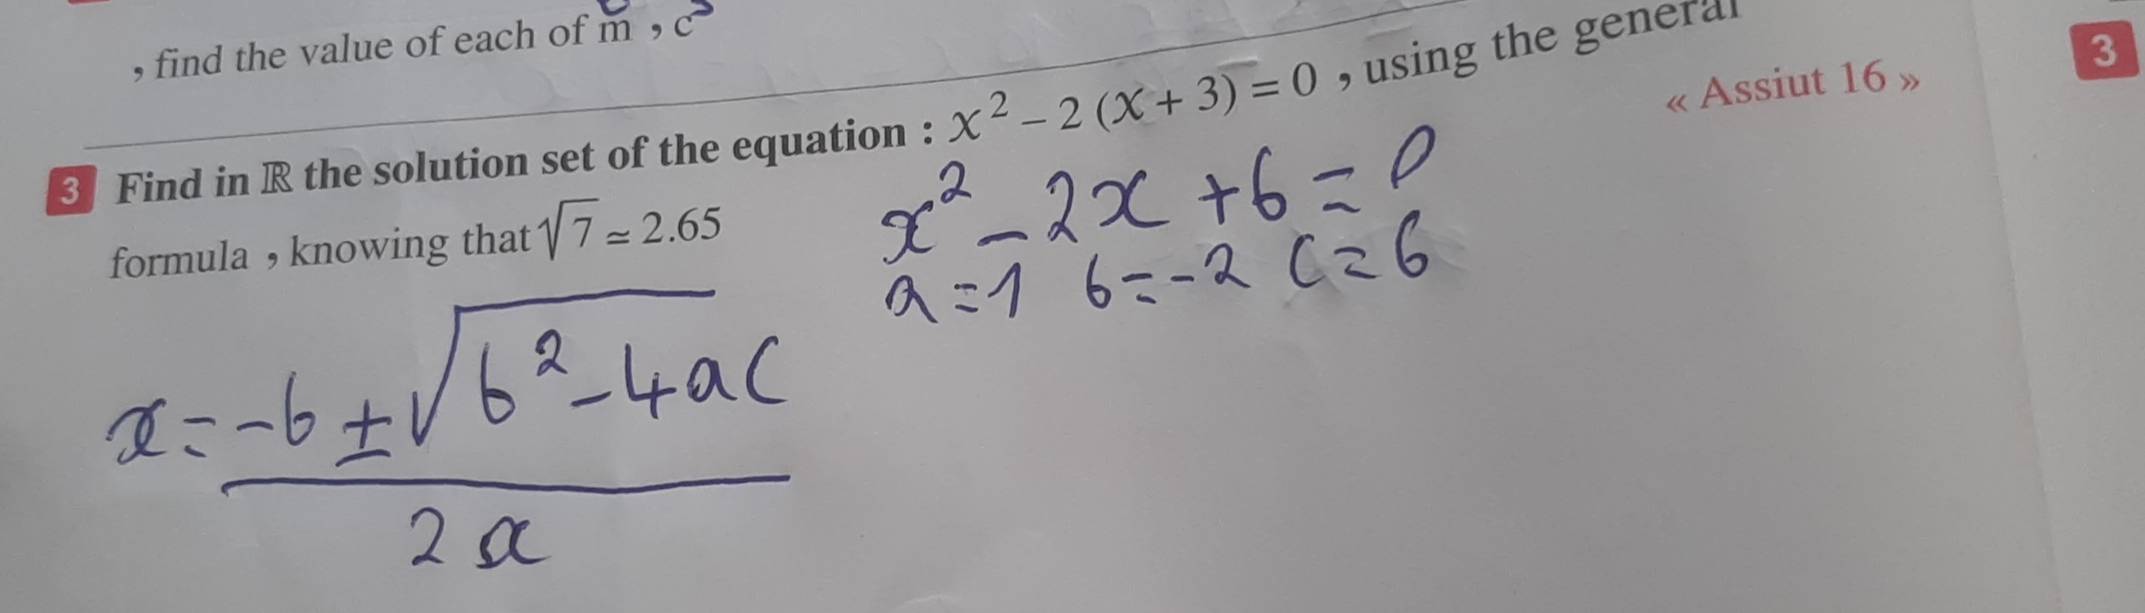 , find the value of each of m , c
3 Find in ℝ the solution set of the equation : x² – 2 (x + 3) = 0 , using the general
formula , knowing that √7 ≃ 2.65
« Assiut 16 »
3
x² - 2x + 6 = 0
a = 1 b = -2 c = 6
x = -b ± √b² - 4ac
2a